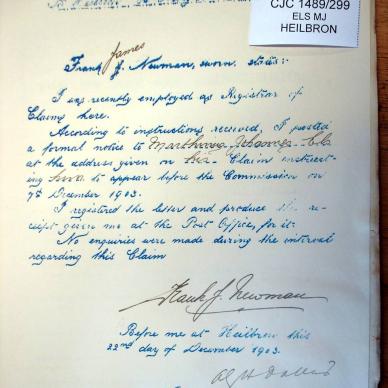 CJC 1489/299
ELS MJ
HEILBRON
James
Frank J. Newman, sworn, states:-
I was recently employed as Registrar of
Claims here.
According to instructions received, I posted
a formal notice to Johannes Els
at the address given on his Claim instruct-
ing him to appear before the Commission on
7th December 1903.
I registered the letter and produce the re-
ceipt given me at the Post Office, for it.
No enquiries were made during the interval
regarding this Claim
Frank J. Newman
Before me at Heilbron this
22nd day of December 1903.